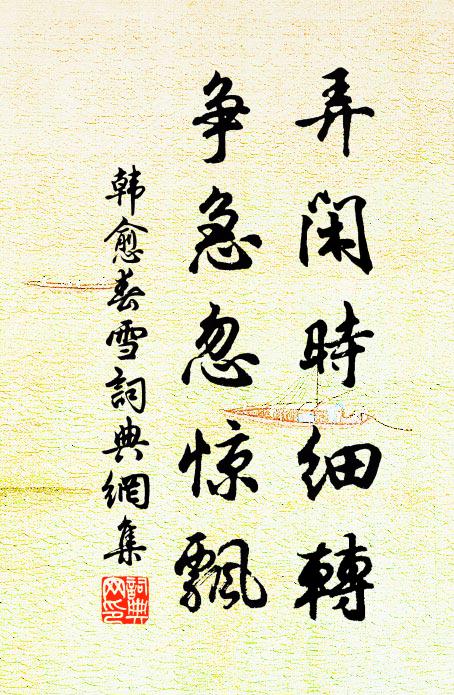 弄闲時细轉
争急忽惊飄
韩愈春雪詞典網集
詞典网印